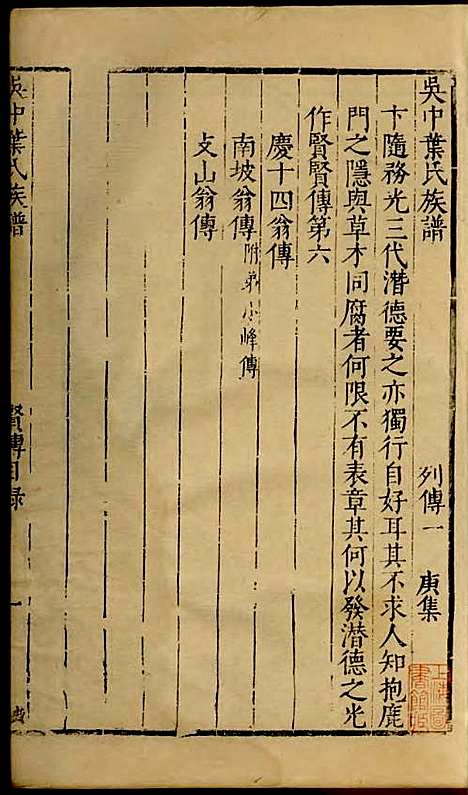 吳中葉氏族譜　列傳一　庚集
卞隨務光三代潛德要之亦獨行自好耳其不求人知抱鹿
門之隱與草木同腐者何限不有表章其何以發潛德之光
作賢賢傳第六
慶十四翁傳
南坡翁傳附弟小峰傳
支山翁傳
吳中葉氏族譜　賢傳目錄　一